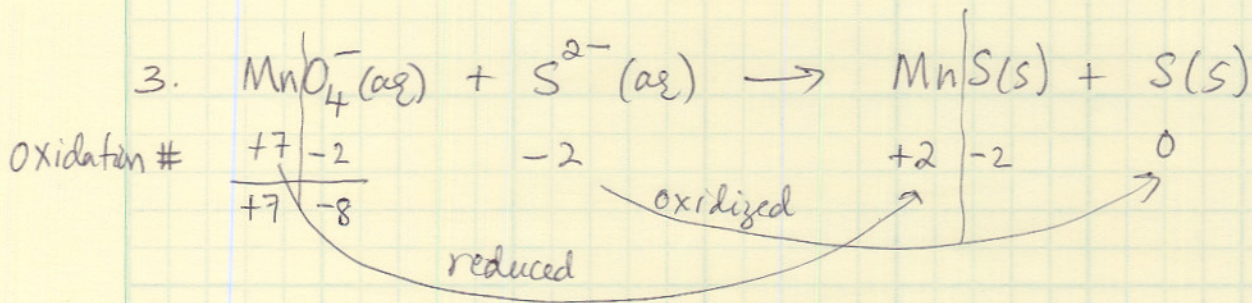 3. MnO₄⁻(aq) + S²⁻(aq) → MnS(s) + S(s)
oxidation # +7 -2 -2 +2 -2 0
+7 -8 oxidized
reduced